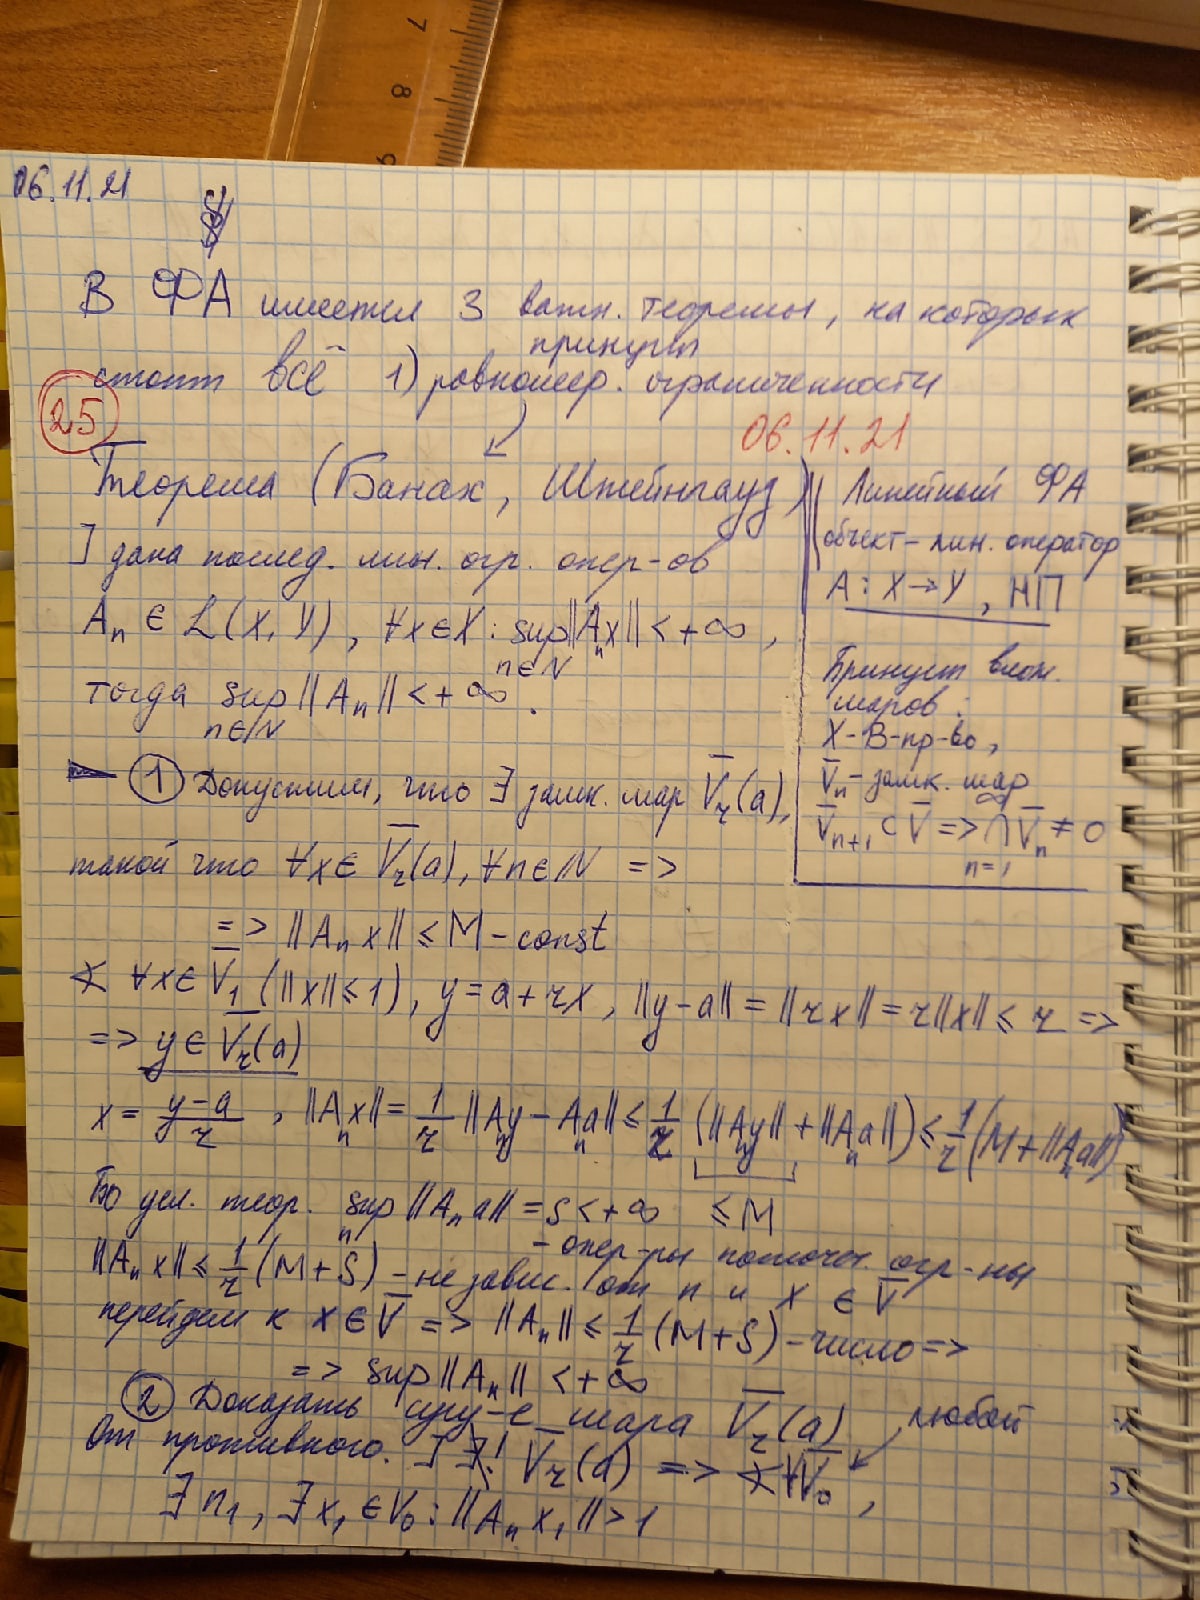 7
8
9
06.11.21
§
В ФА имеется 3 важн. теоремы, на которых
принцип
стоит всё 1) равномер. ограниченности
25
06.11.21
Теорема (Банах, Штейнгауз)
] дана послед. лин. огр. опер-ов
Aₙ ∈ L(X, Y), ∀x∈X : sup ‖Aₙx‖ < +∞,
n∈N
тогда sup ‖Aₙ‖ < +∞.
n∈N
Линейный ФА
объект – лин. оператор
A : X → Y, НП
Принцип влож.
шаров:
X - B-пр-во,
V̅ₙ – замк. шар
V̅ₙ₊₁ ⊂ V̅ => ∞⋂ V̅ₙ ≠ 0
n=1
① Допустим, что ∃ замк. шар V̅ᵣ(a),
такой что ∀x∈ V̅ᵣ(a), ∀n∈N =>
=> ‖Aₙ x‖ ≤ M – const
∢ ∀x∈ V̅₁ (‖x‖≤1), y = a + rx, ‖y-a‖ = ‖rx‖ = r‖x‖ ≤ r =>
=> y ∈ V̅ᵣ(a)
x = (y-a)/r , ‖Aₙx‖ = 1/r ‖Aₙy – Aₙa‖ ≤ 1/r (‖Aₙy‖ + ‖Aₙa‖) ≤ 1/r (M + ‖Aₙa‖)
По усл. теор. sup ‖Aₙ a‖ = S < +∞ ≤ M
n
– опер-ры поточеч. огр-ны
‖Aₙ x‖ ≤ 1/r (M+S) – не завис. от n и x ∈ V̅
перейдем к x ∈ V̅ => ‖Aₙ‖ ≤ 1/r (M+S) – число =>
=> sup ‖Aₙ‖ < +∞
② Доказать сущ-е шара V̅ᵣ(a)
любой
От противного. ] ∄! V̅ᵣ(a) => ∢ ∀V̅₀,
∃ n₁, ∃ x₁ ∈ V₀ : ‖Aₙ x₁‖ > 1